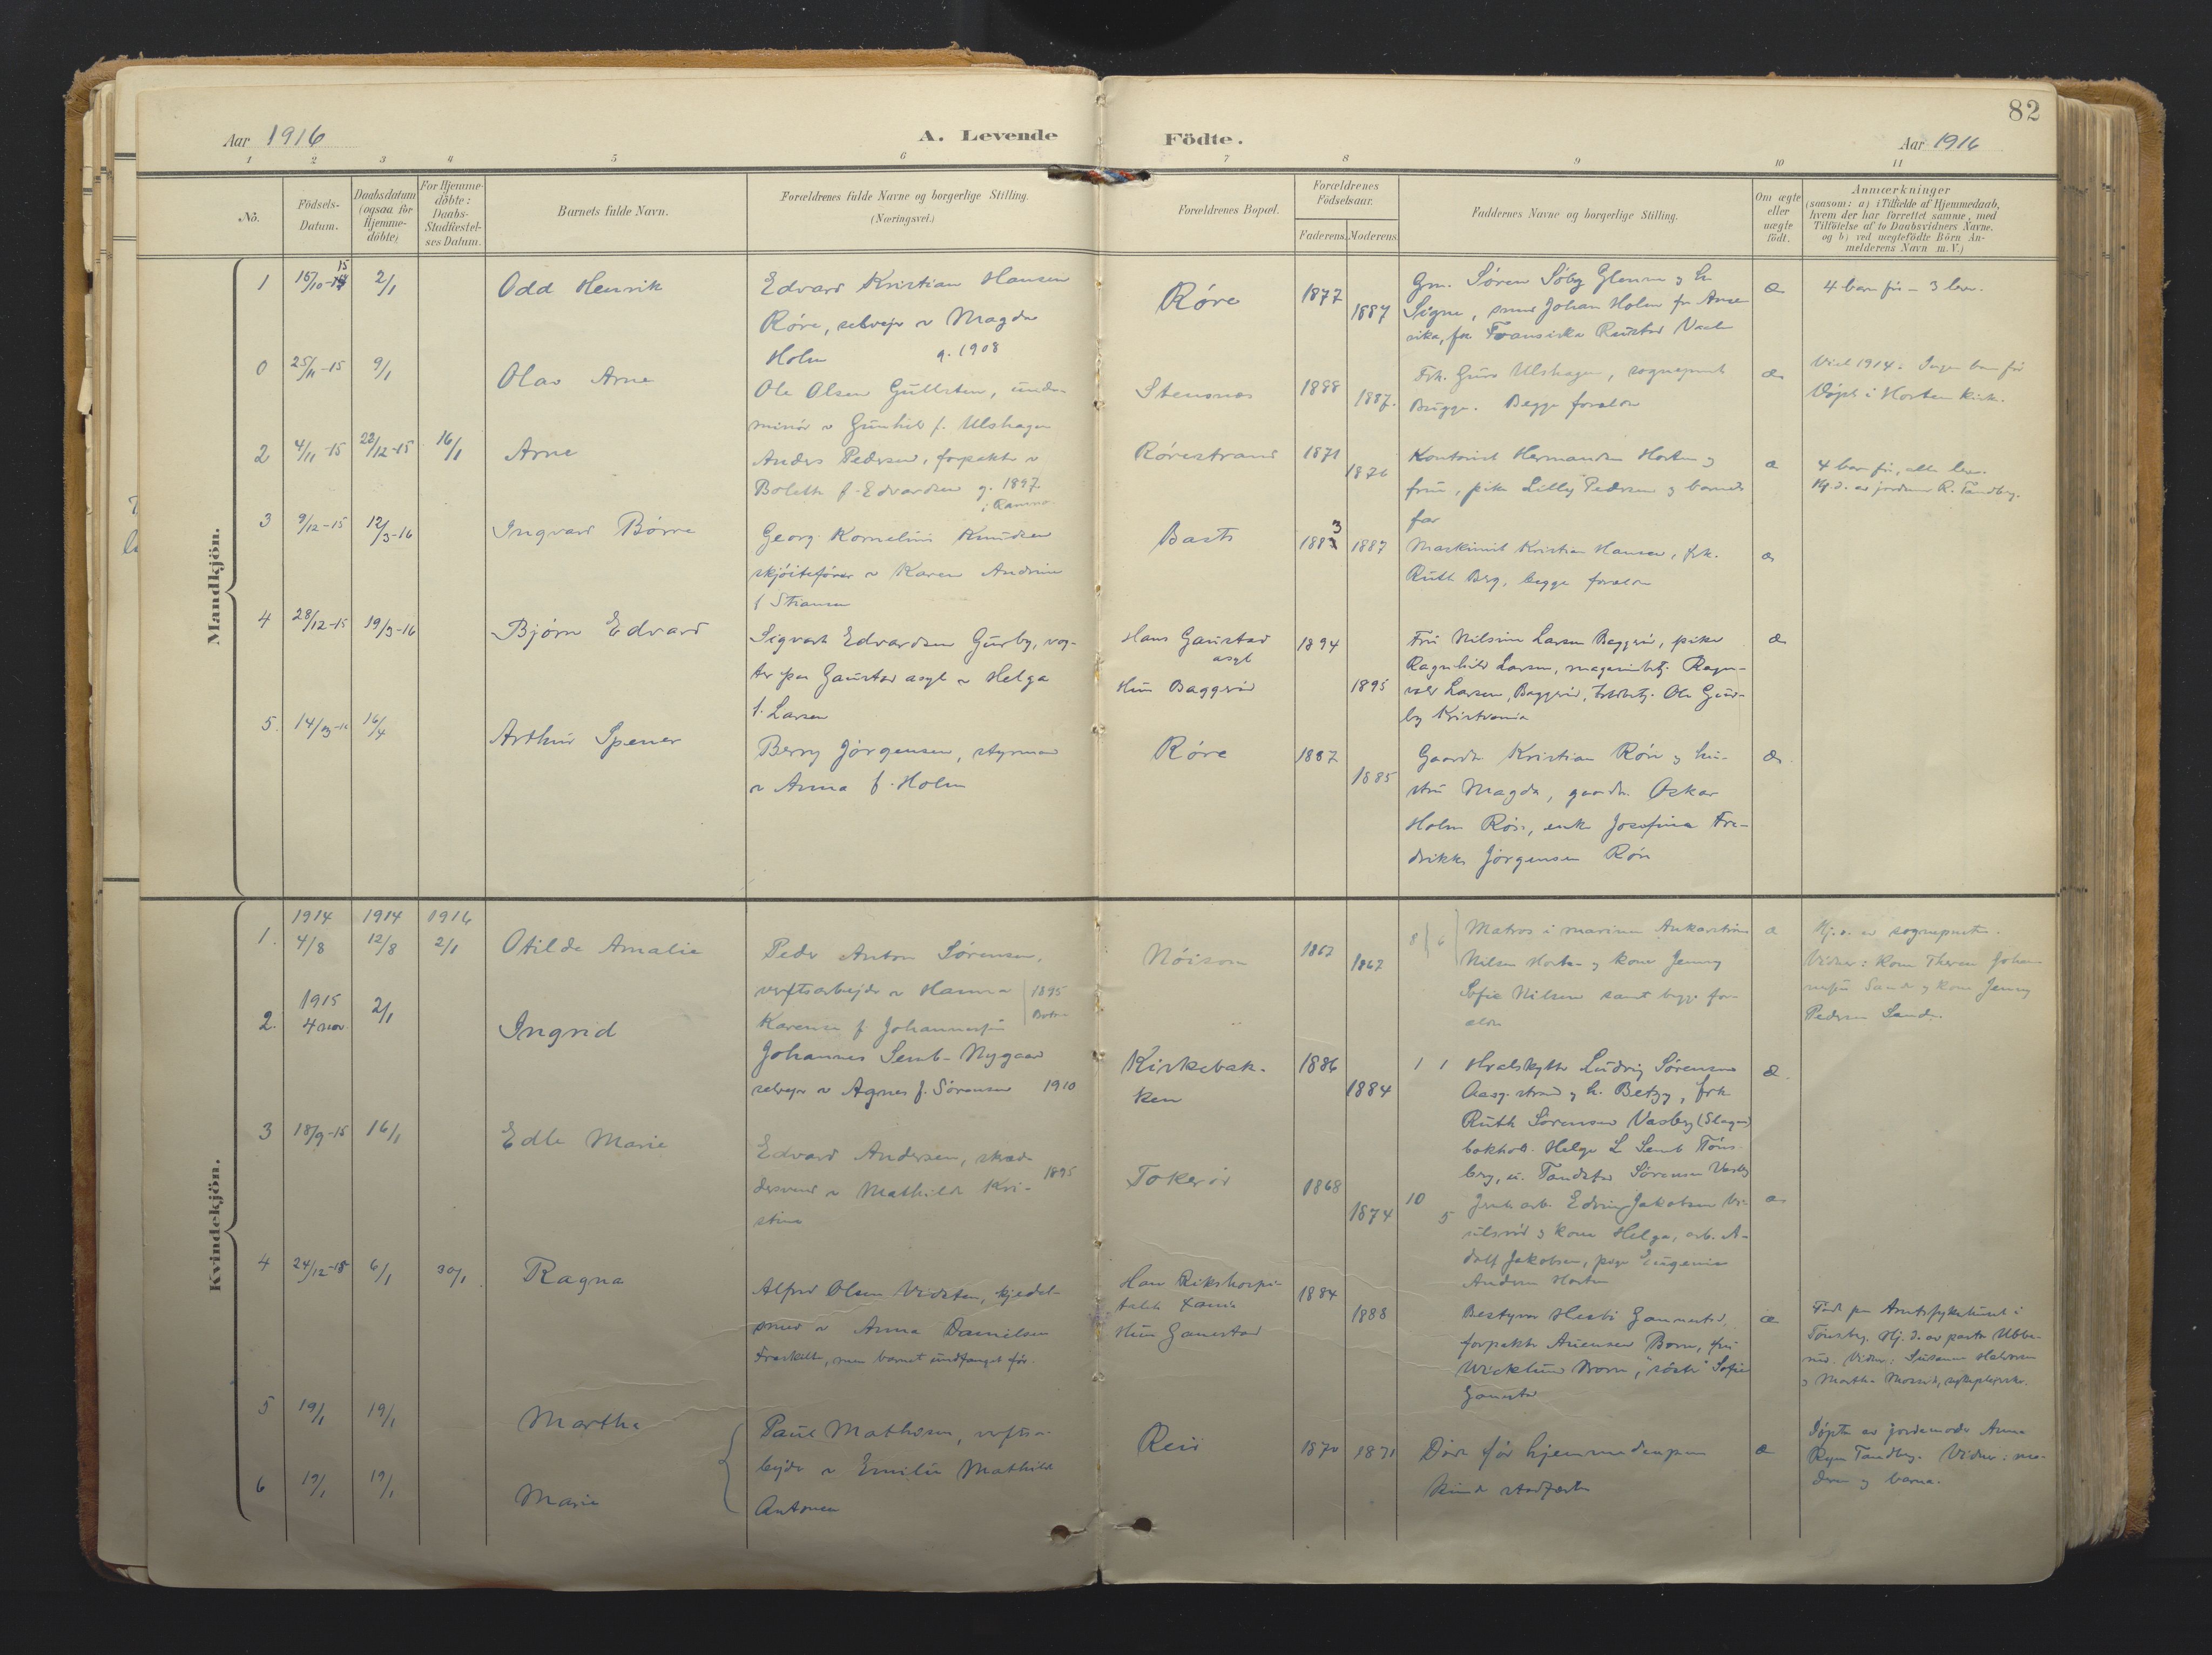 82
Aar 1916
A. Levende
Födte.
Aar 1916
1 2 3 4 5 6 7 8 9 10 11
No.
Födsels-
Datum.
Daabsdatum
(ogsaa for
Hjemme-
döbte)
For Hjemme-
döbte:
Daabs-
Stadfæstel-
ses Datum.
Barnets fulde Navn.
Forældrenes fulde Navne og borgerlige Stilling.
(Næringsvei.)
Forældrenes Bopæl.
Forældrenes
Födselsaar.
Faderens. Moderens.
Faddernes Navne og borgerlige Stilling.
Om ægte
eller
uægte
födt.
Anmærkninger
(saasom: a) i Tilfælde af Hjemmedaab,
hvem der har forrettet samme, med
Tilföielse af to Daabsvidners Navne.
og b) ved uægtefödte Börn An-
melderens Navn m. V.)
Mandkjön.
1 2/1 Odd Henrik
Edvard Kristian Hansen
Røre, selveier & Magda
Holm g. 1908
Røre 1877 1887
Gm. Søren Søby Glenne & h.
Signe, Johan Holm fra Ame
rika,
æ
4 barn før – 3 lever.
0 25/11-15 9/1 Olav Arne
Ole Olsen Gullsten, under-
minør & Gunhild f. Ulshagen
Stensnes 1888 1887.
Frk. Guro Ulshagen, sogneprest
Bugge. Begge forældre
æ
Viet 1914. Ingen barn før
Døpt i Horten kirke.
2 4/11-15 28/12-15 16/1 Arne
Anders Pedersen, forpakter &
Bolette f. Edvardsen g. 1897
i Ramnes
Rørestrand 1871 1876
Kontorist Hermansen Horten &
frue, pike Lilly Pedersen & barnets
far
æ
4 barn før, alle lever.
Hj.d. av jordmor R. Tandberg.
3 9/12-15 12/3-16 Ingvard Børre
Georg Kornelius Knudsen
skjøitefører & Karen Andrine
f Stiansen
Bastø 1883 1887
Maskinist Kristian Hansen, frk.
Ruth Berg, begge forældre
æ
4 28/12-15 19/3-16 Bjørn Edvard
Sigvart Edvardsen Gurby, vog-
ter paa Gaustad asyl & Helga
f. Larsen
Hans Gaustad
asyl
Hun Baggerød
1894 1895
Fru Nilsine Larsen Baggerød, pike
Ragnhild Larsen, magasinbetj. Ragn-
vald Larsen, Baggerød, Ole Gur-
by Kristiania
æ
5. 14/3-16 16/4 Arthur Spener
Berny Jørgensen, styrmand
& Anna f. Holm
Røre 1887 1885
Gaardb. Kristian Røre & hu-
stru Magda, gaardb. Oskar
Holm Røre, enke Josefine Fre-
drikke Jørgensen Røre
æ
Kvindekjön.
1914 1914 1916
1. 4/8 12/8 2/1 Otilde Amalie
Peder Anton Sørensen,
verftsarbeider & Hanna 1895
Karense f. Johannesen Borre
Nøisom 1867 1867
8 6 Matros i marinen Ankarstrøm
Nilsen Horten & kone Jenny
Sofie Nilsen samt begge for-
ældre
æ
Hj.d. av sogneprest.
Vidner: Kone Therese Johan-
nesen Sande & kone Jenny
Pedersen Sande.
1915
2. 4 nov. 2/1 Ingrid
Johannes Semb-Nygaard
selveier & Agnes f. Sørensen 1910
Kirkebak-
ken
1886 1884
1 1 Hvalskytter Ludvig Sørensen
Aasg.strand & h. Betzy, frk
Ruth Sørensen Vasberg (Slagen)
bokhold. Helge L Semb Tøns-
berg, Sørensen
æ.
3 18/9-15 16/1 Edle Marie
Edvard Andersen, skræd-
dersvend & Mathilde Kri- 1895
stine
Tokerød 1868 1874
10 5 Jernb.arb. Edvin Jakobsen
& kone Helga, arb. A-
dolf Jakobsen, pige Eugenie
Andersen Horten
æ
4 24/12-15 6/1 30/1. Ragna
Alfred Olsen Vidsten, kjedel-
smed & Anna Danielsen
Fraskilte, men barnet undfanget før.
Han Rikshospi-
talet X.ania
Hun Gannestad
1884 1888
Bestyrer Hesbi Gannestad,
forpakter Ariensen Borre, fru
Wicklund Borre, "søster" Sofie
Gannestad
æ
Født paa Amtssykehuset i
Tønsberg. Hj. d. av pastor Ubbe-
rud. Vidner: Susanne Halvorsen
& Martha sykepleierske.
5 19/1 19/1 Martha
6 19/1 19/1 Marie
Paul Mathisen, verftsar-
beider & Emilie Mathilde
Antonsen
Reir 1870 1871
Døde før hjemmedaapen
kunde stadfæstes
æ
Døpte av jordemoder Anna
Tandberg. Vidner: mo-
deren & barna.